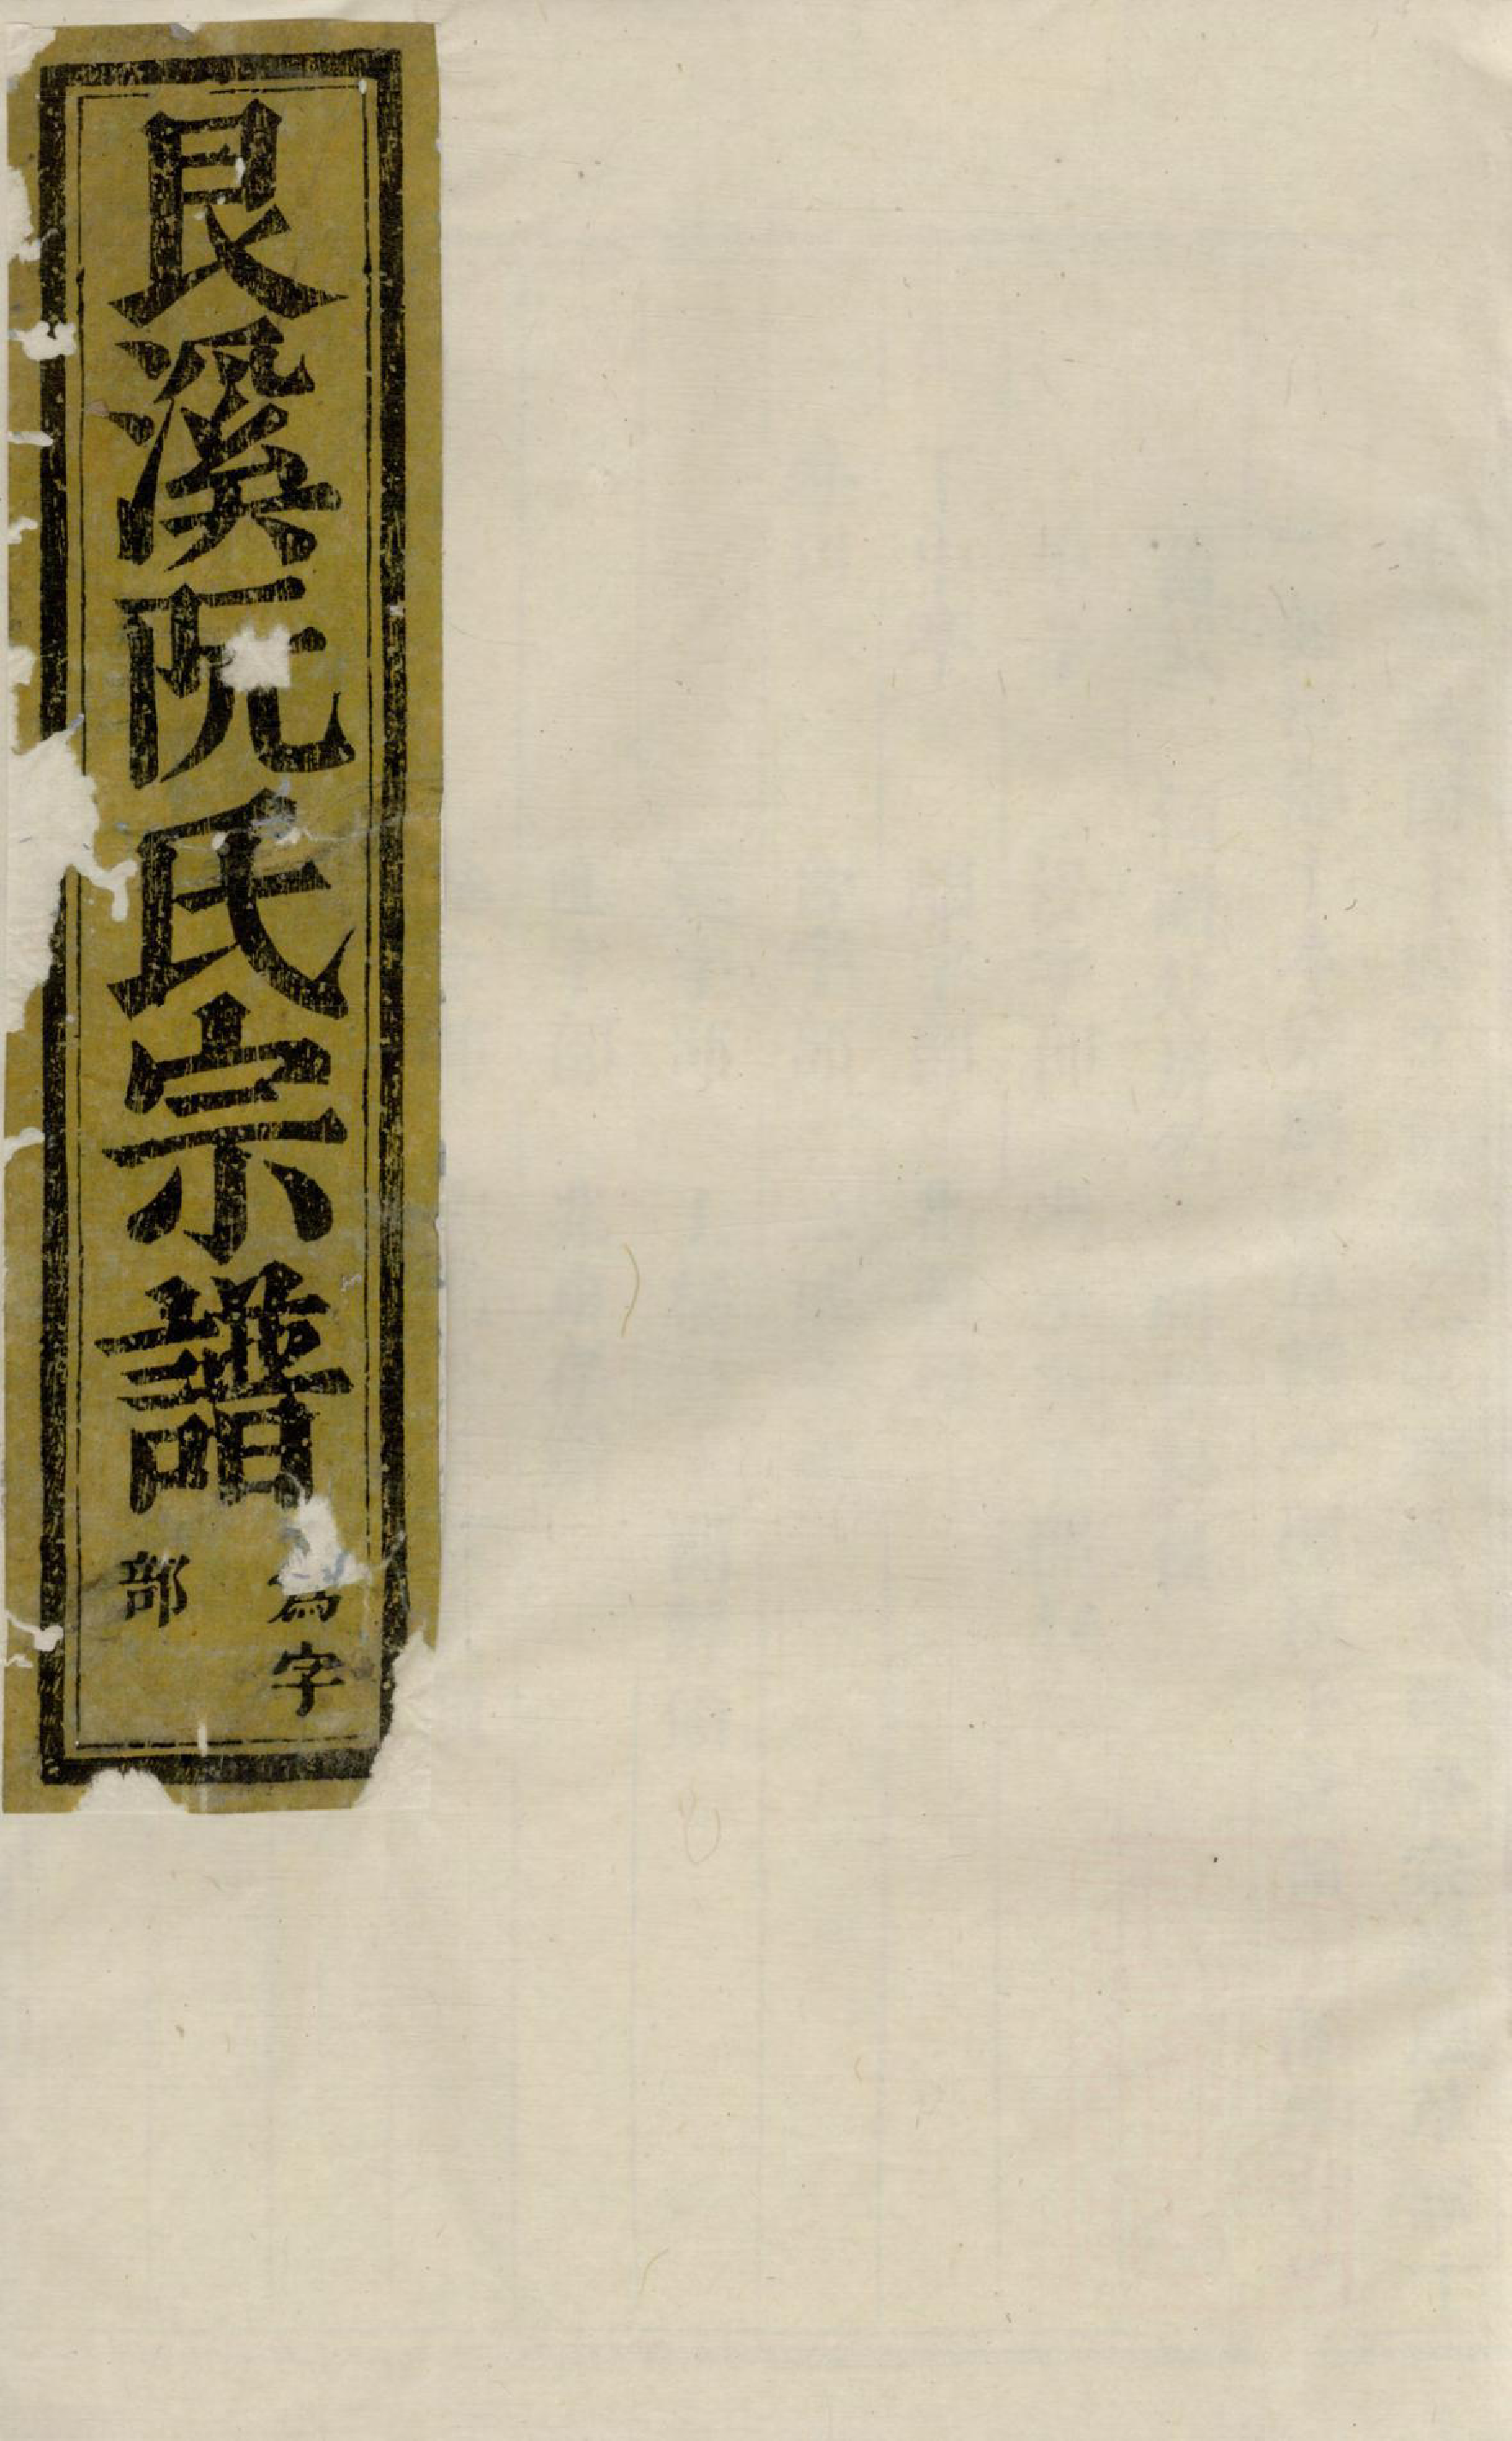 艮溪阮氏宗譜
為字
部